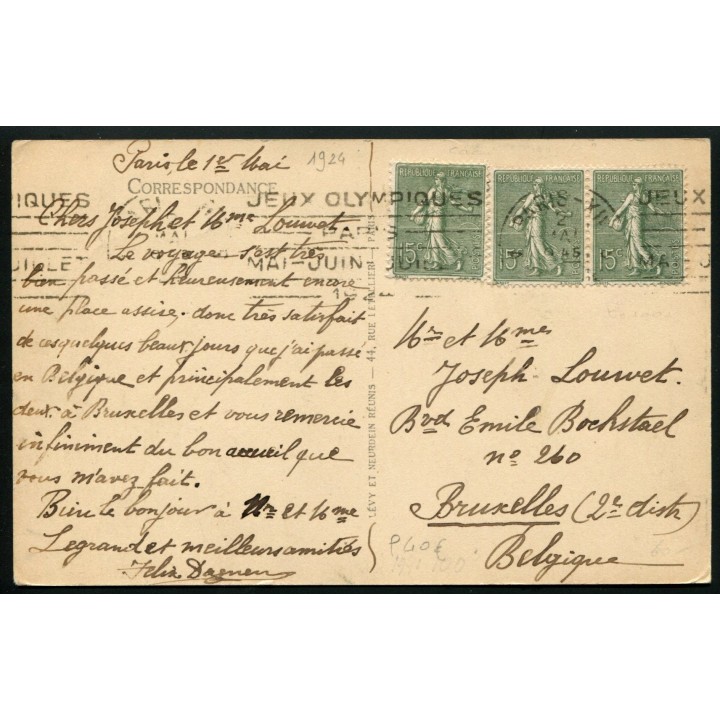 Paris, le 1er Mai 1924
CORRESPONDANCE
Chers Joseph et Mme Louwet
Le voyage s'est très
bien passé et heureusement encore
une place assise, donc très satisfait
de ces quelques beaux jours que j'ai passé
en Belgique et principalement les
deux à Bruxelles et vous remercie
infiniment du bon accueil que
vous m'avez fait.
Bien le bonjour à Mr et Mme
Legrand et meilleurs amitiés
Felix
LÉVY ET NEURDEIN RÉUNIS — 44, RUE LETELLIER — PARIS
RÉPUBLIQUE FRANÇAISE
15c
RÉPUBLIQUE FRANÇAISE
15c
RÉPUBLIQUE FRANÇAISE
15c
IQUES
JUILLET
JEUX OLYMPIQUES
PARIS
MAI-JUIN
PARIS-VII
JEUX
MAI-JU
Mr et Mme
Joseph Louwet.
Bvd Emile Bockstael
no 260
Bruxelles (2e distr)
Belgique
P40€